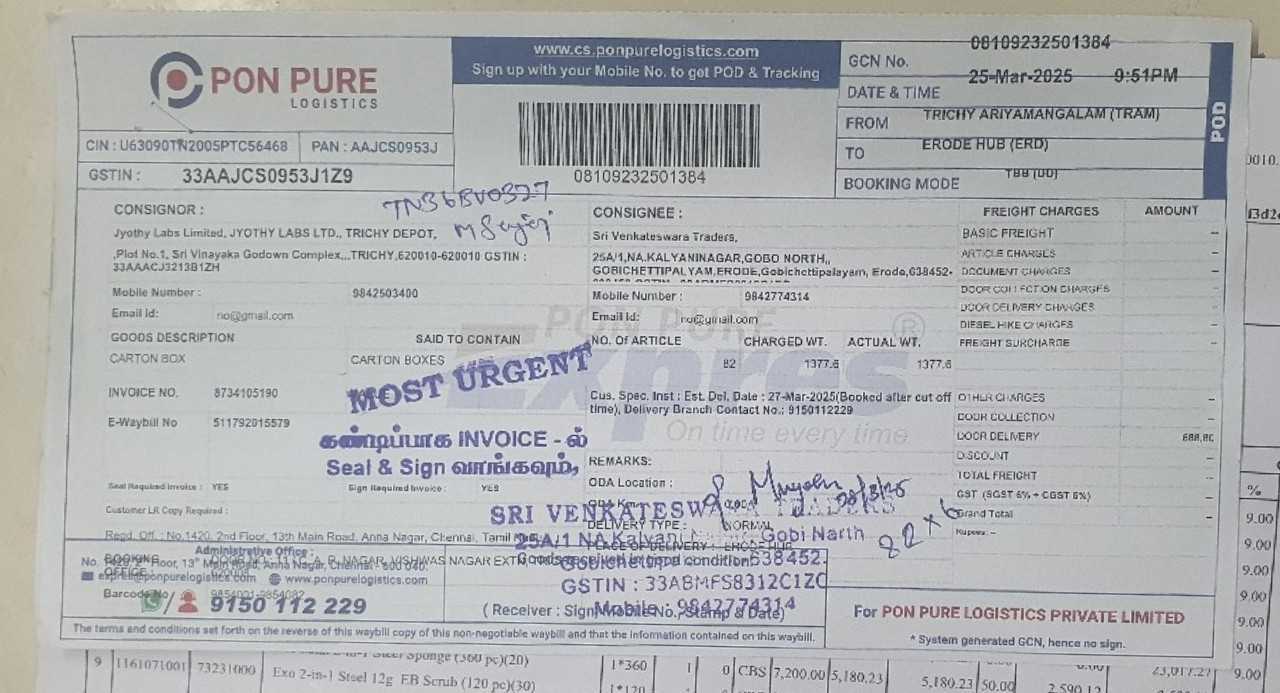 PON PURE
LOGISTICS
CIN : U63090TN2005PTC56468 PAN : AAJCS0953J
GSTIN : 33AAJCS0953J1Z9
www.cs.ponpurelogistics.com
Sign up with your Mobile No. to get POD & Tracking
08109232501384
GCN No. 08109232501384
DATE & TIME 25-Mar-2025 9:51PM
FROM TRICHY ARIYAMANGALAM (TRAM)
TO ERODE HUB (ERD)
BOOKING MODE
POD
TN36BV0327
CONSIGNOR :
Jyothy Labs Limited, JYOTHY LABS LTD., TRICHY DEPOT,
,Plot No.1, Sri Vinayaka Godown Complex,,,TRICHY,620010-620010 GSTIN :
33AAACJ3213B1ZH
Mobile Number : 9842503400
Email Id: no@gmail.com
CONSIGNEE :
Sri Venkateswara Traders,
25A/1,NA.KALYANINAGAR,GOBO NORTH,,
GOBICHETTIPALYAM,ERODE,Gobichettipalayam, Erode,638452-
Mobile Number : 9842774314
Email Id: no@gmail.com
FREIGHT CHARGES AMOUNT
BASIC FREIGHT –
ARTICLE CHARGES –
DOCUMENT CHARGES –
DOOR COLLECTION CHARGES –
DOOR DELIVERY CHARGES –
DIESEL HIKE CHARGES –
FREIGHT SURCHARGE –
OTHER CHARGES –
DOOR COLLECTION –
DOOR DELIVERY
DISCOUNT –
TOTAL FREIGHT –
GST (SGST 6% + CGST 6%) –
Grand Total –
Rupees: –
GOODS DESCRIPTION SAID TO CONTAIN NO. OF ARTICLE CHARGED WT. ACTUAL WT.
CARTON BOX CARTON BOXES 82 1377.6 1377.6
PON PURE
Expres ®
On time every time
MOST URGENT
INVOICE NO. 8734105190
E-Waybill No 511792015579
கண்டிப்பாக INVOICE - ல்
Seal & Sign வாங்கவும்,
Seal Required Invoice : YES Sign Required Invoice : YES
Customer LR Copy Required :
Cus. Spec. Inst : Est. Del. Date : 27-Mar-2025(Booked after cut off
time), Delivery Branch Contact No.: 9150112229
REMARKS:
ODA Location :
DELIVERY TYPE : NORMAL
PLACE OF DELIVERY : ERODE HUB
28/3/25
82 x 6
SRI VENKATESWARA TRADERS
25A/1 NA Kalyani Gobi Narth
638452.
GSTIN : 33ABMFS8312C1ZC
Mobile : 9842774314
Goods received in good condition
( Receiver : Sign, Mobile No., Stamp & Date)
Regd. Off. : No.1420, 2nd Floor, 13th Main Road, Anna Nagar, Chennai, Tamil
Administrative Office :
BOOKING OFFICE :
express@ponpurelogistics.com www.ponpurelogistics.com
Barcode No 9854001-9854082
9150 112 229
For PON PURE LOGISTICS PRIVATE LIMITED
* System generated GCN, hence no sign.
The terms and conditions set forth on the reverse of this waybill copy of this non-negotiable waybill and that the information contained on this waybill.
Steel Sponge (360 pc)(20)
9 1161071001 73231000 Exo 2-in-1 Steel 12g EB Scrub (120 pc)(30) 1*360 1 0 CBS 7,200.00 5,180.23 5,180.23 50.00 2,590.12 23,017.27 9.00
1*120
%
9.00
9.00
9.00
9.00
9.00
9.00